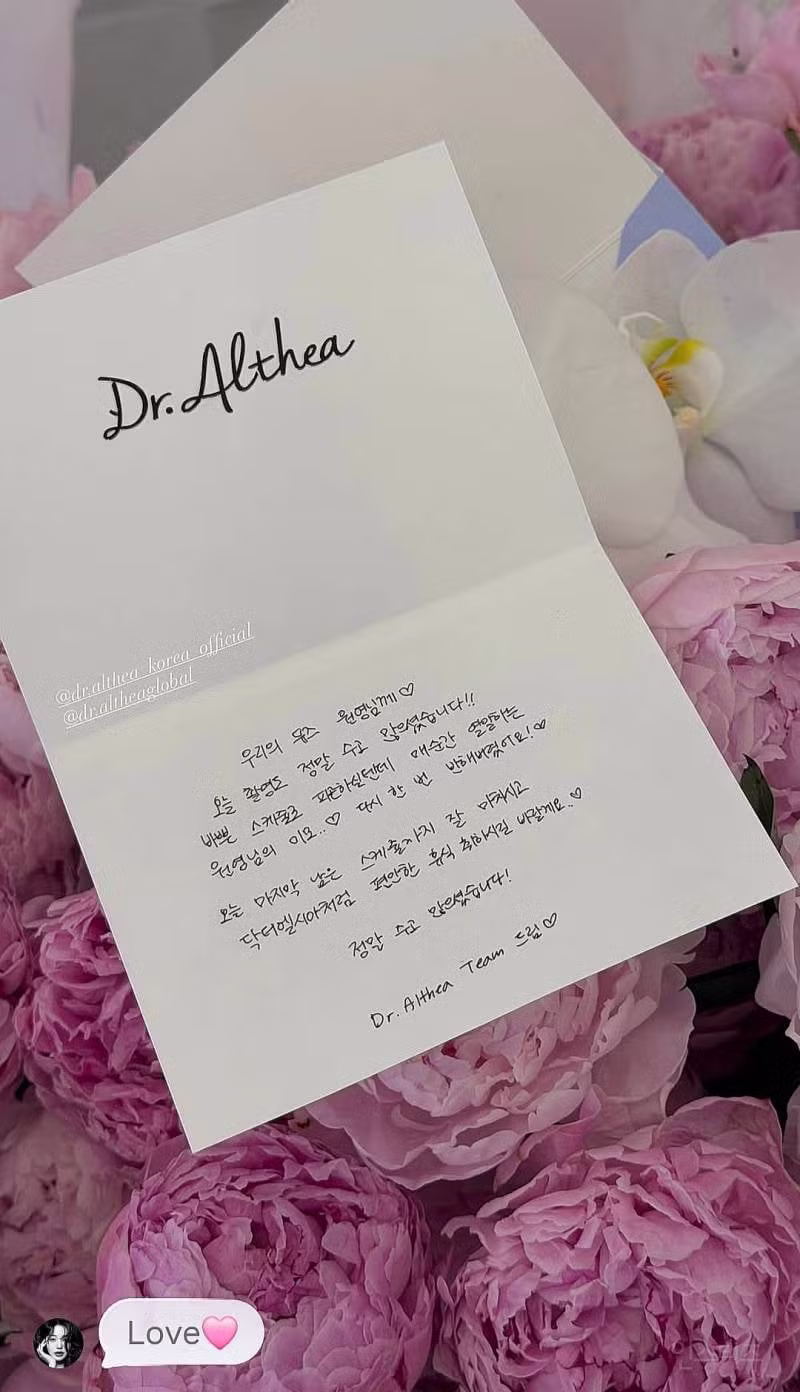 Dr.Althea
@dr.althea_korea_official
@dr.altheaglobal
우리의 뮤즈 원영님께♡
오늘 촬영도 정말 수고 많으셨습니다!!
바쁜 스케줄로 피곤하실텐데 매순간 열일하는
원영님의 미모..♡ 다시 한 번 반해버렸어요!♡
오늘 마지막 남은 스케줄까지 잘 마치시고
닥터엘시아처럼 편안한 휴식 취하시길 바랄게요..♡
정말 수고 많으셨습니다!
Dr.Althea Team 드림♡
Love🩷